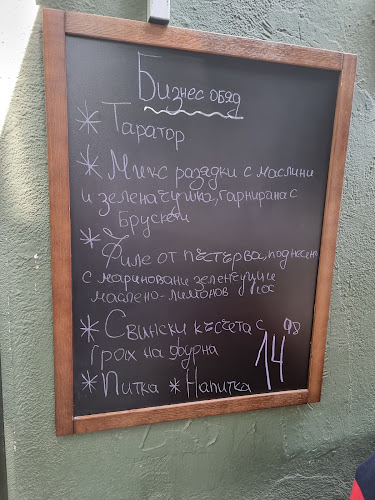 Бизнес обяд
* Таратор
* Микс разядки с маслини
и зеленачушка, гарнирана с
Брускети
* Филе от пъстърва, поднесено
с мариновани зеленчуци и
маслено-лимонов сос
* Свински късчета с
грах на фурна
* Питка * Напитка
14 98